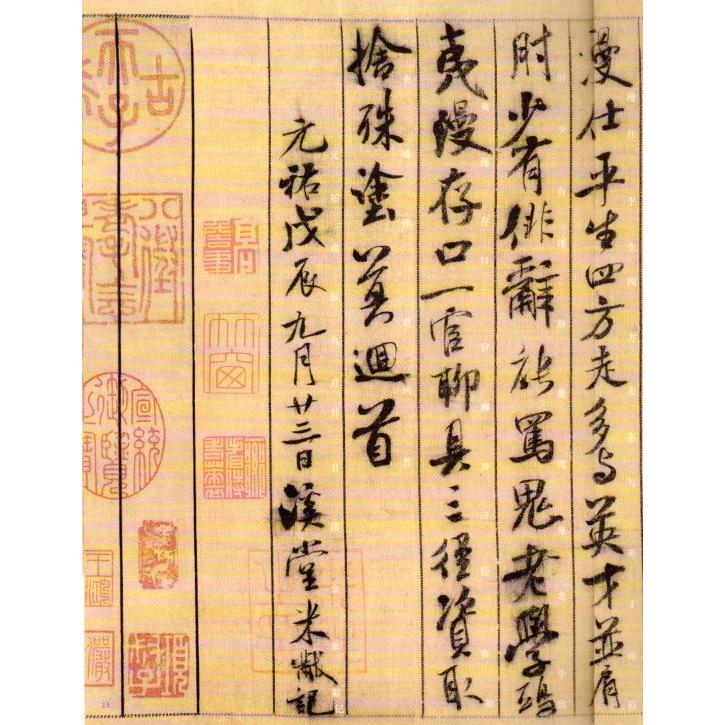 漫仕平生四方走多与英才並肩
肘少有俳辭能罵鬼老學鴟
夷漫存口一官聊具三徑資取
捨殊塗莫迴首
元祐戊辰九月廿三日溪堂米黻記
古希天子
竹窗
宣統御覽之寶